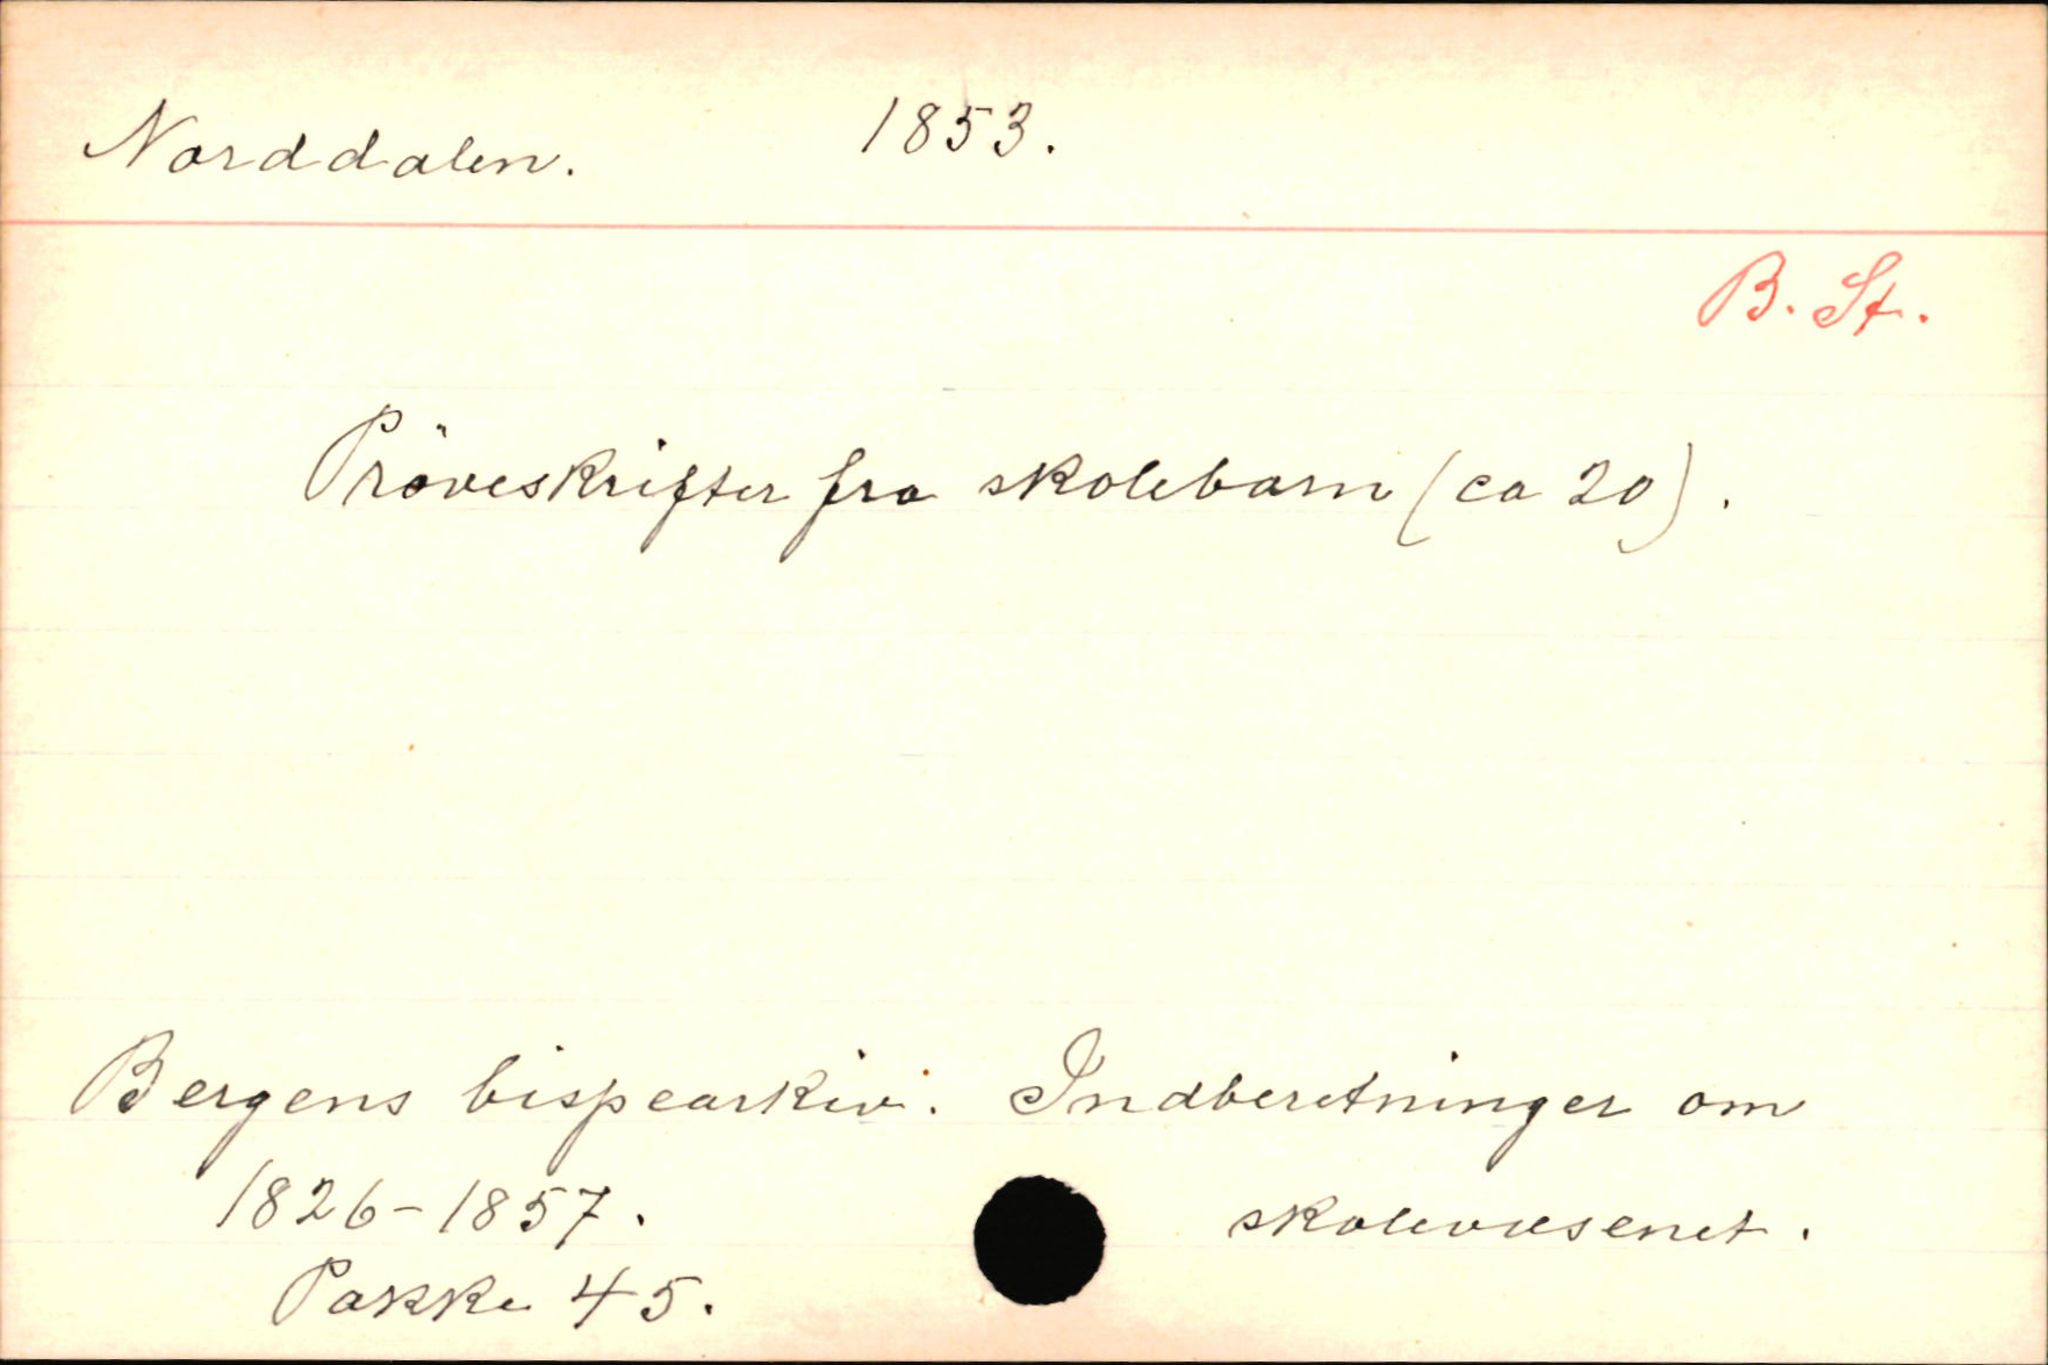 Norddalen. 1853.
B. St.
Pröveskrifter fra skolebarn (ca 20).
Bergens bispearkiv. Indberetninger om
1826-1857. skolevæsenet.
Pakke 45.